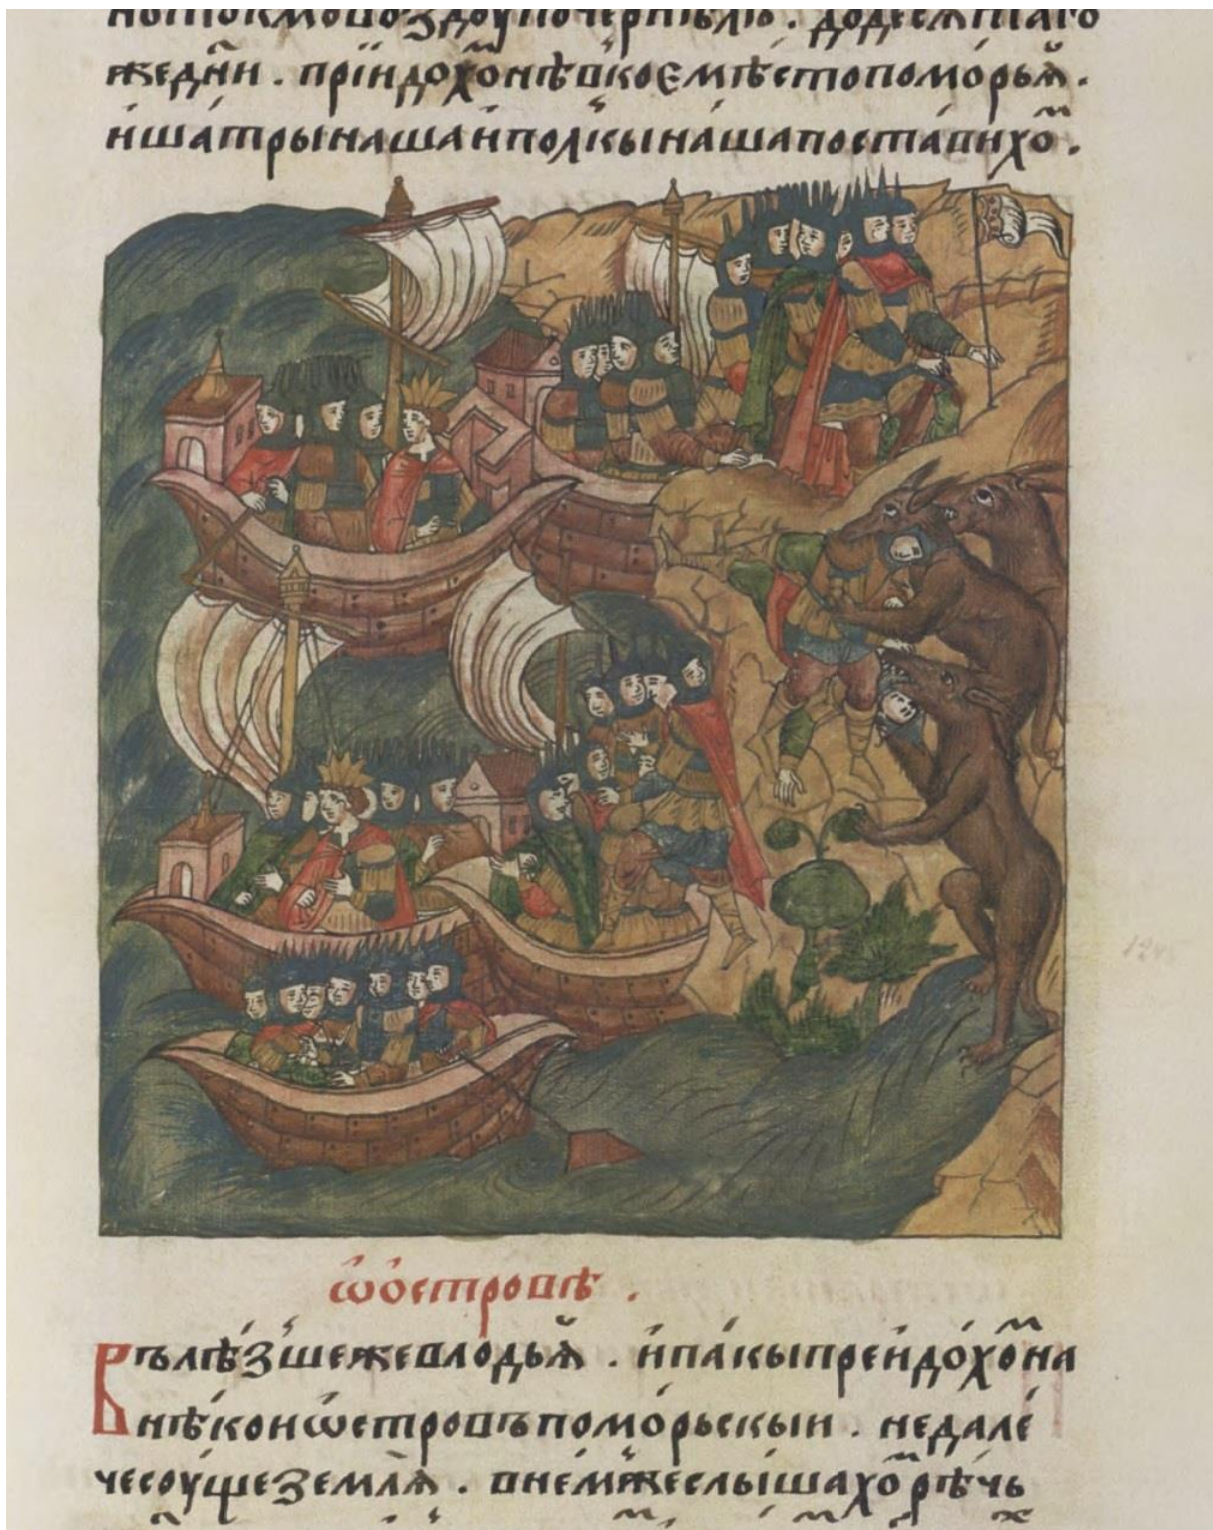 нотокмовоздоупочернѣлю. додесѧтаго
жедн҃и . прїидохо́ⷨнѣвкоємѣстопомо́рьѧ̆.
и҆ша́трына́шаи҆полкы̀на́шапоста́вихо́ⷨ.
ѡ҆о́стровѣ .
Вълѣ́зшежевлодьѧ̆ . и҆па́кыпреидо́хоⷨна
нѣ́коиѡ҆стровъпомо́рьскыи . недале́
чесоу́щеземлѧ̀ . внемже́слы́шахоⷨрѣ́чь